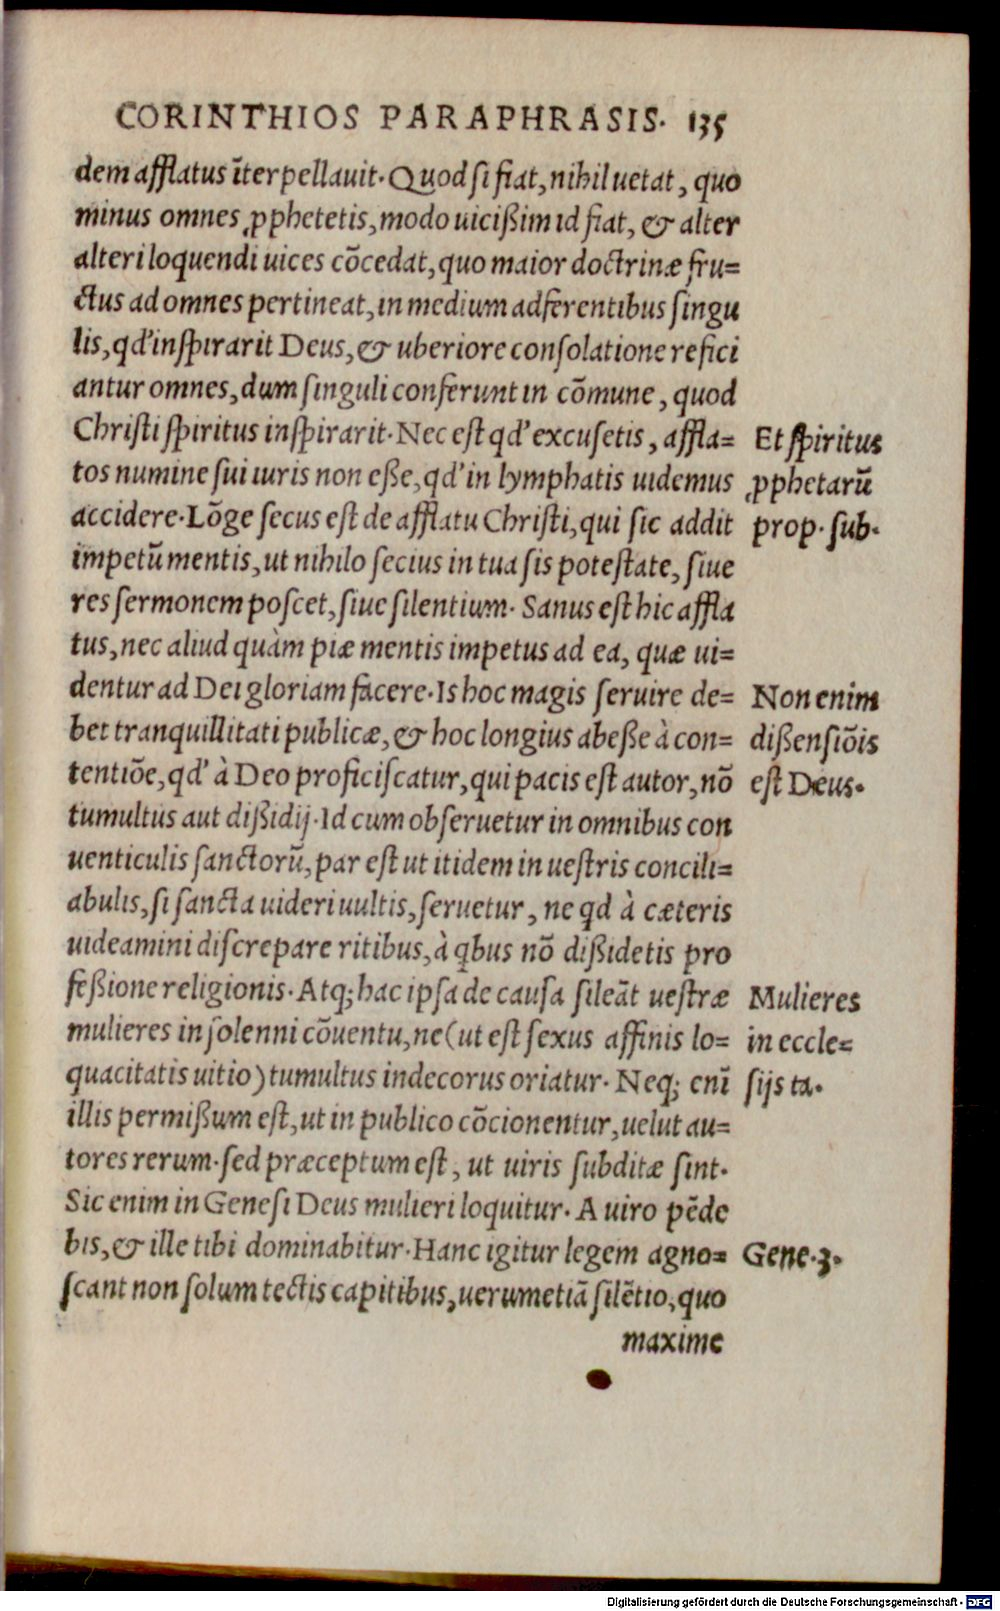 CORINTHIOS PARAPHRASIS. 135
dem afflatus īterpellauit. Quod si fiat, nihil uetat, quo
minus omnes ꝓphetetis, modo uicißim id fiat, & alter
alteri loquendi uices cõcedat, quo maior doctrinæ fru=
ctus ad omnes pertineat, in medium adferentibus singu
lis, qd' inspirarit Deus, & uberiore consolatione refici
antur omnes, dum singuli conferunt in cõmune, quod
Christi spiritus inspirarit. Nec est qd' excusetis, affla=
tos numine sui iuris non eße, qd' in lymphatis uidemus
accidere. Lõge secus est de afflatu Christi, qui sic addit
impetũ mentis, ut nihilo secius in tua sis potestate, siue
res sermonem poscet, siue silentium. Sanus est hic affla
tus, nec aliud quàm piæ mentis impetus ad ea, quæ ui=
dentur ad Dei gloriam facere. Is hoc magis seruire de=
bet tranquillitati publicæ, & hoc longius abeße à con=
tentiõe, qd' à Deo proficiscatur, qui pacis est autor, nõ
tumultus aut dißidij. Id cum obseruetur in omnibus con
uenticulis sanctorũ, par est ut itidem in uestris concili=
abulis, si sancta uideri uultis, seruetur, ne qd à cæteris
uideamini discrepare ritibus, à qbus nõ dißidetis pro
feßione religionis. Atq; hac ipsa de causa sileãt uestræ
mulieres in solenni cõuentu, ne (ut est sexus affinis lo=
quacitatis uitio) tumultus indecorus oriatur. Neq; enĩ
illis permißum est, ut in publico cõcionentur, uelut au=
tores rerum. sed præceptum est, ut uiris subditæ sint.
Sic enim in Genesi Deus mulieri loquitur. A uiro pẽde
bis, & ille tibi dominabitur. Hanc igitur legem agno=
scant non solum tectis capitibus, uerumetiã silẽtio, quo
maxime
Et spiritus
ꝓphetarũ
prop. sub.
Non enim
dißensiõis
est Deus.
Mulieres
in eccle=
sijs ta.
Gene. 3.
Digitalisierung gefördert durch die Deutsche Forschungsgemeinschaft - DFG